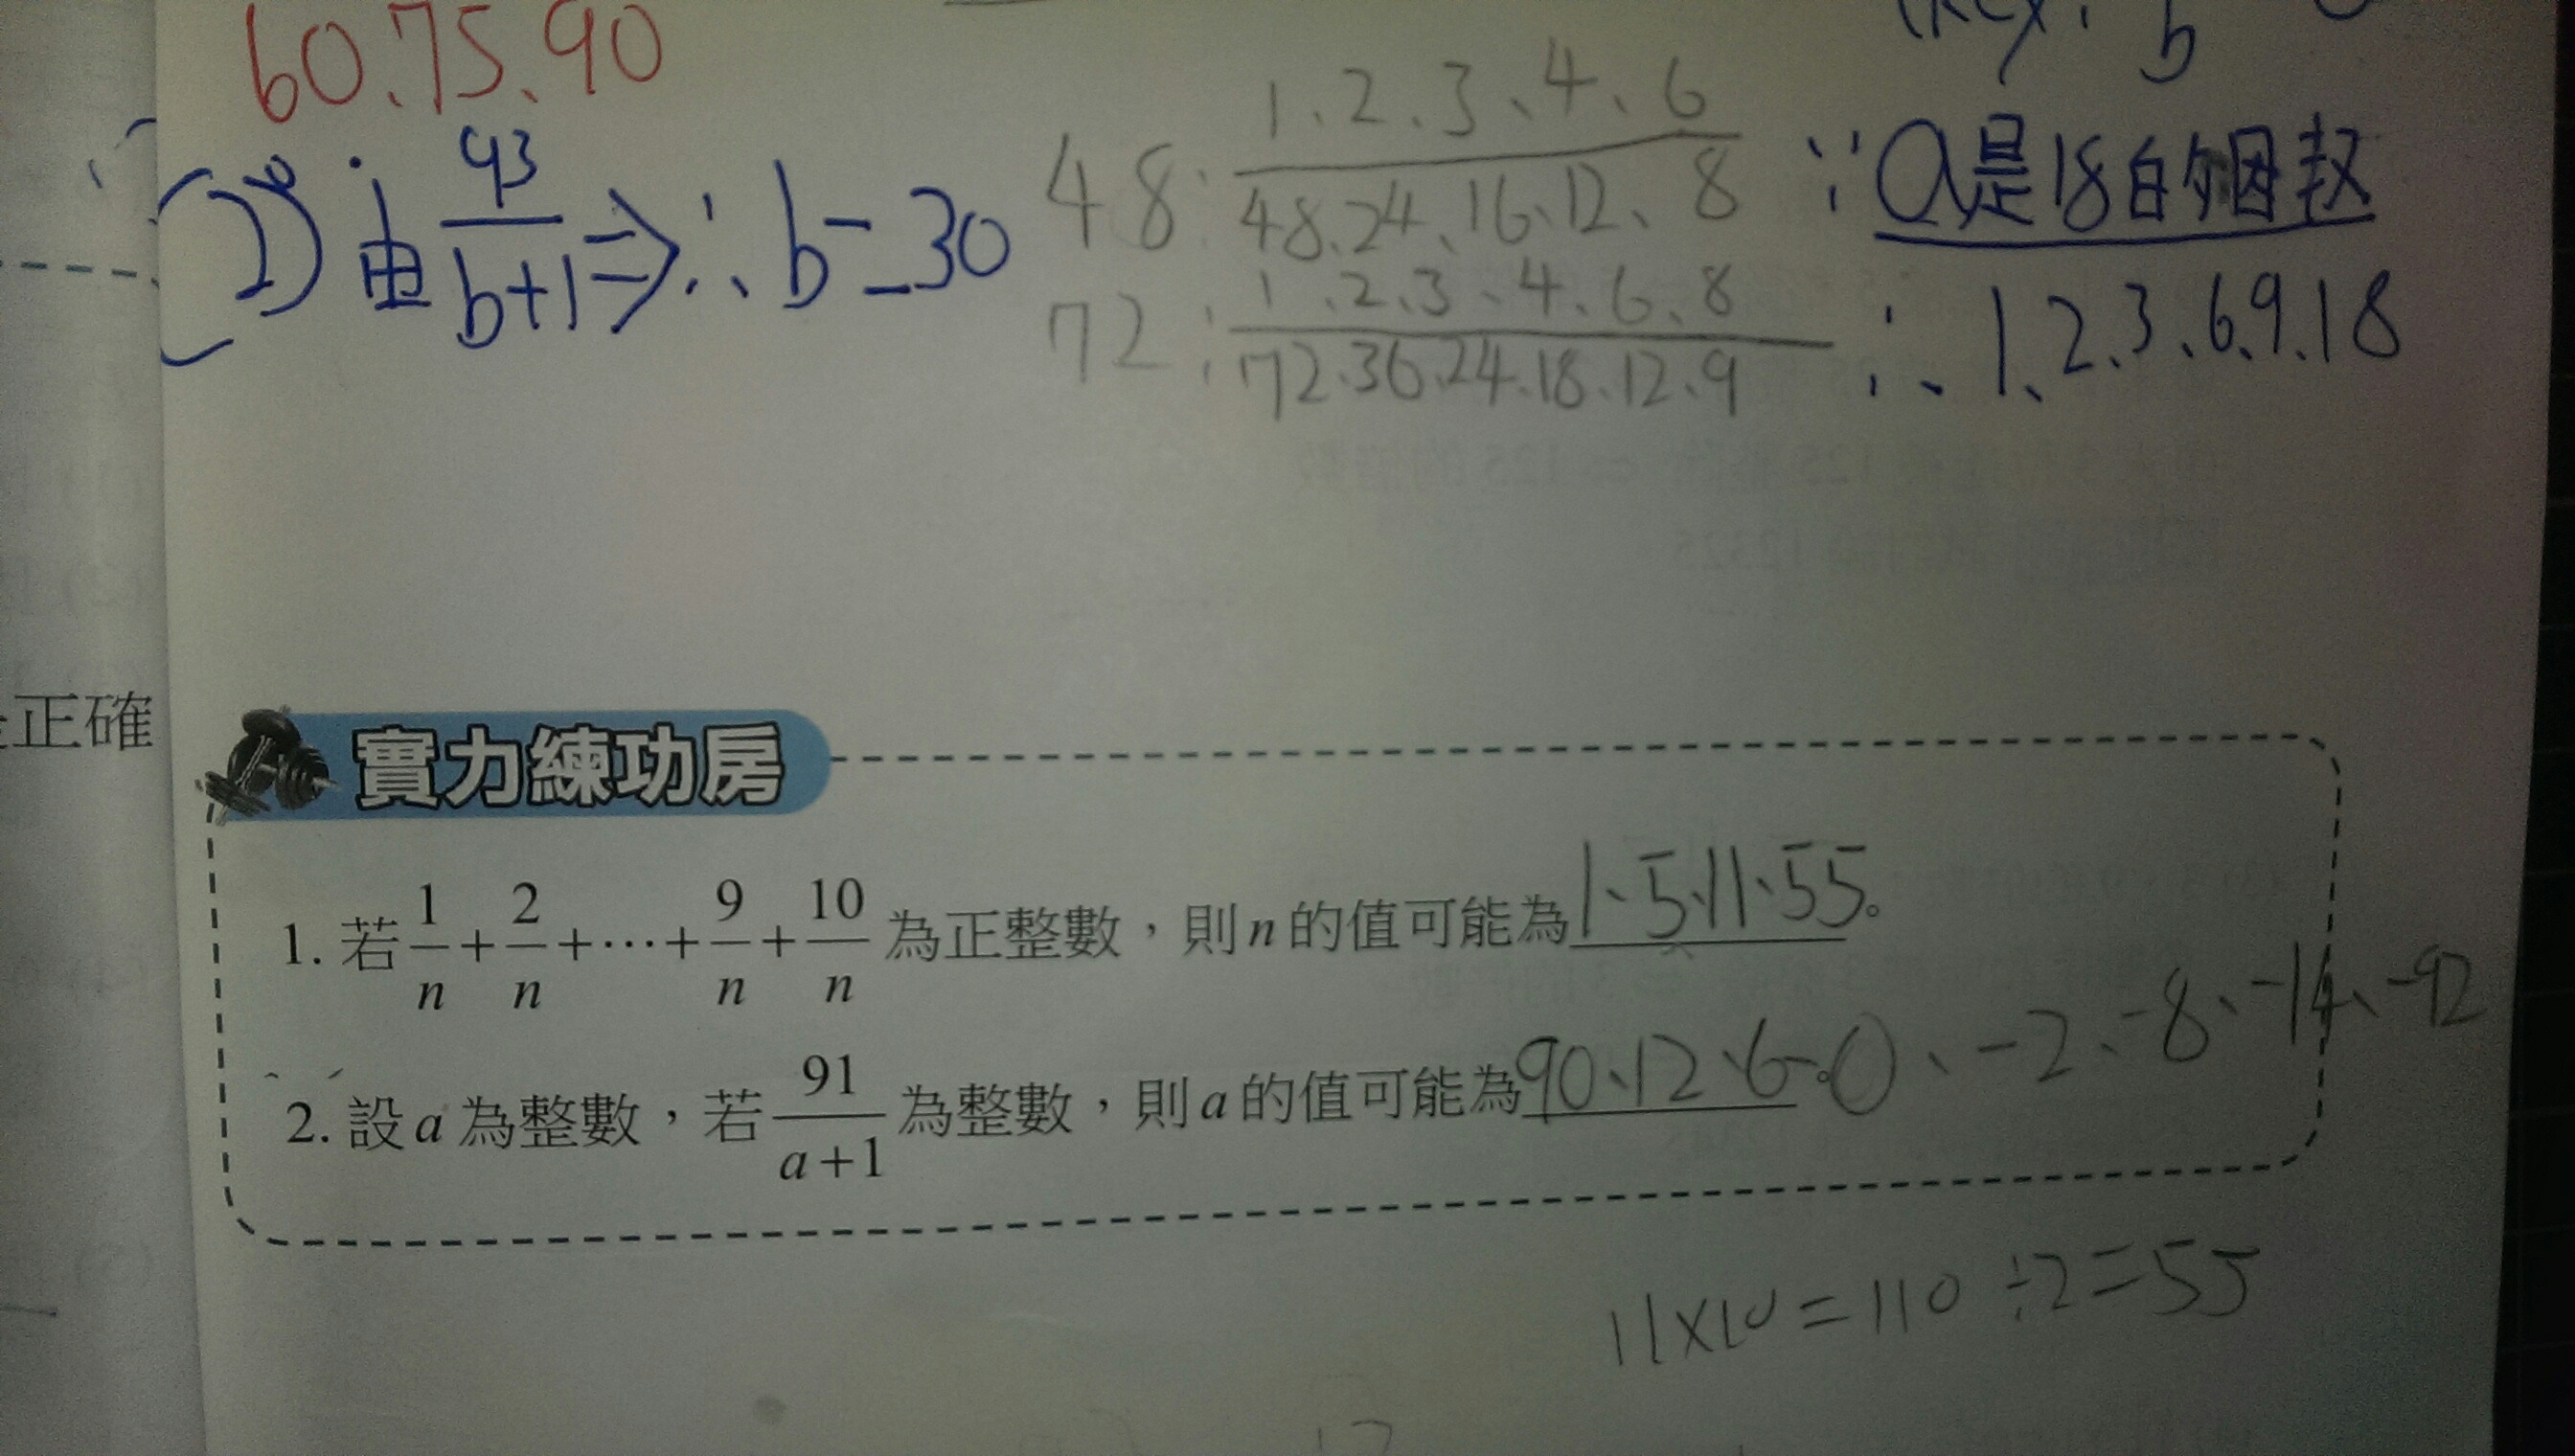 60、75、90
(2) 由 93/(b+1) ⇒ ∴ b = 30
48: 1、2、3、4、6
48、24、16、12、8
72: 1、2、3、4、6、8
72、36、24、18、12、9
b
∵ a是18的因数
∴ 1、2、3、6、9、18
正確
實力練功房
1. 若 1/n + 2/n + ⋯ + 9/n + 10/n 為正整數，則 n 的值可能為 1、5、11、55。
2. 設 a 為整數，若 91/(a+1) 為整數，則 a 的值可能為 90、12、6、0、-2、-8、-14、-92。
11×10=110÷2=55